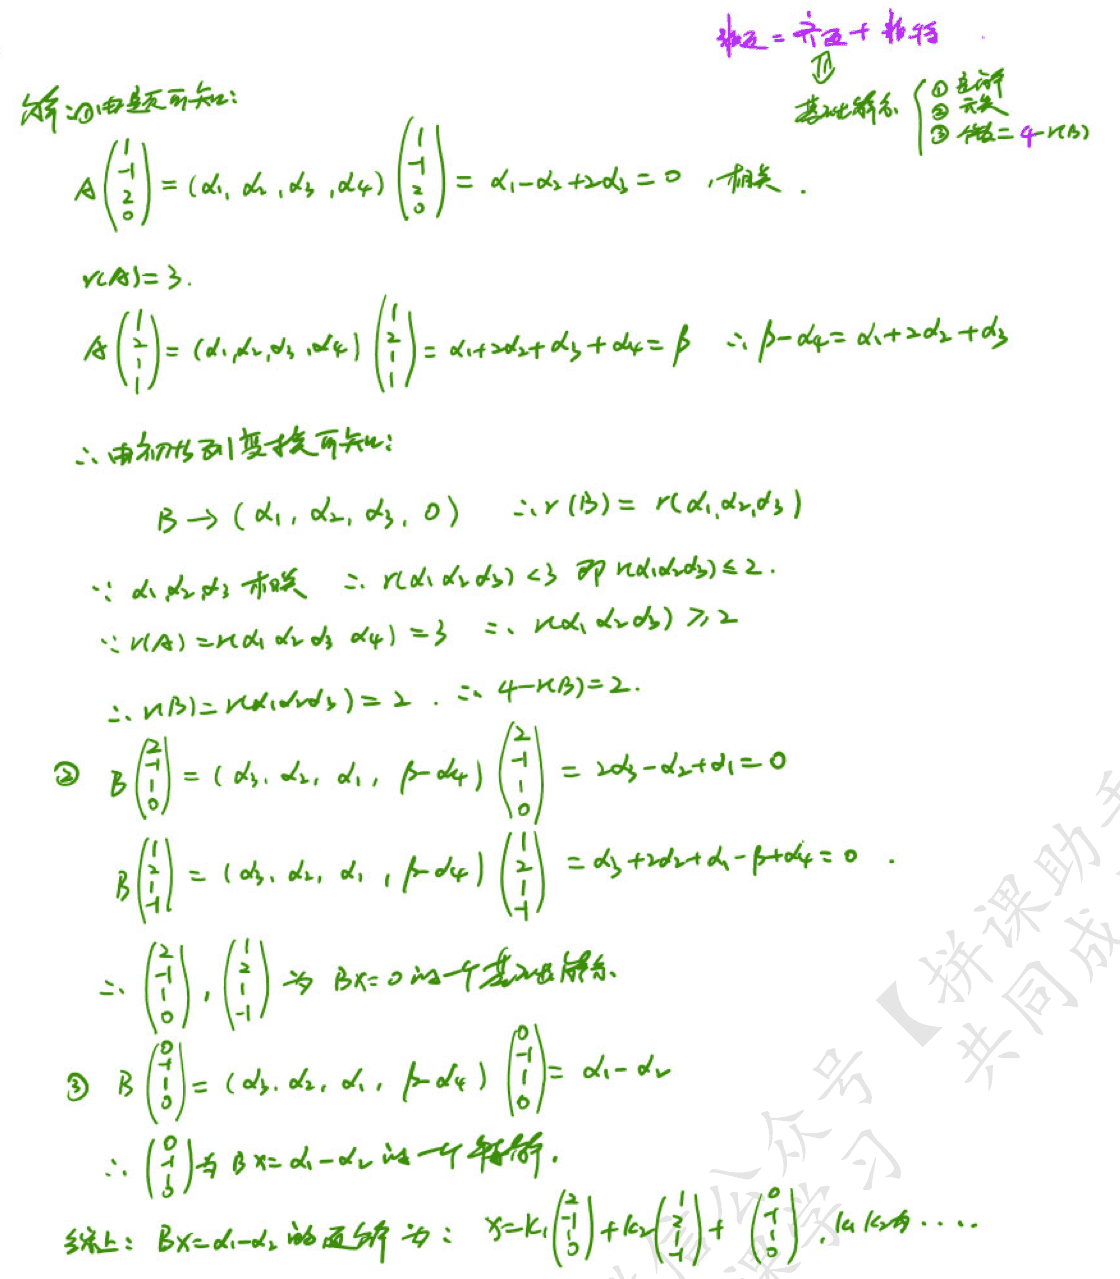 非通 = 齐通 + 非特
⇓
基础解系 { ① 是解
② 无关
③ 个数 = 4-r(B)
解:①由题可知:
A(1 -1 2 0) = (α₁, α₂, α₃, α₄)(1 -1 2 0) = α₁-α₂+2α₃=0, 相关.
r(A)=3.
A(1 2 1 1) = (α₁,α₂,α₃,α₄)(1 2 1 1) = α₁+2α₂+α₃+α₄=β ∴ β-α₄=α₁+2α₂+α₃
∴由初等列变换可知:
B → (α₁, α₂, α₃, 0) ∴ r(B) = r(α₁,α₂,α₃)
∵ α₁,α₂,α₃ 相关 ∴ r(α₁ α₂ α₃) <3 即 r(α₁α₂α₃) ≤ 2.
∵ r(A)=r(α₁ α₂ α₃ α₄) =3 ∴ r(α₁ α₂ α₃) ≥ 2
∴ r(B)=r(α₁α₂α₃)=2. ∴ 4-r(B)=2.
② B(2 -1 1 0) = (α₃, α₂, α₁, β-α₄)(2 -1 1 0) = 2α₃-α₂+α₁=0
B(1 2 1 -1) = (α₃, α₂, α₁, β-α₄)(1 2 1 -1) = α₃+2α₂+α₁-β+α₄=0.
∴ (2 -1 1 0), (1 2 1 -1) 为 Bx=0 的一个基础解系
③ B(0 -1 1 0) = (α₃, α₂, α₁, β-α₄)(0 -1 1 0) = α₁-α₂
∴ (0 -1 1 0) 为 Bx=α₁-α₂ 的一个特解.
综上: Bx=α₁-α₂ 的通解为: x=k₁(2 -1 1 0)+k₂(1 2 1 -1)+(0 -1 1 0), k₁ k₂为....
公众号【拼课助手
课学习 共同成